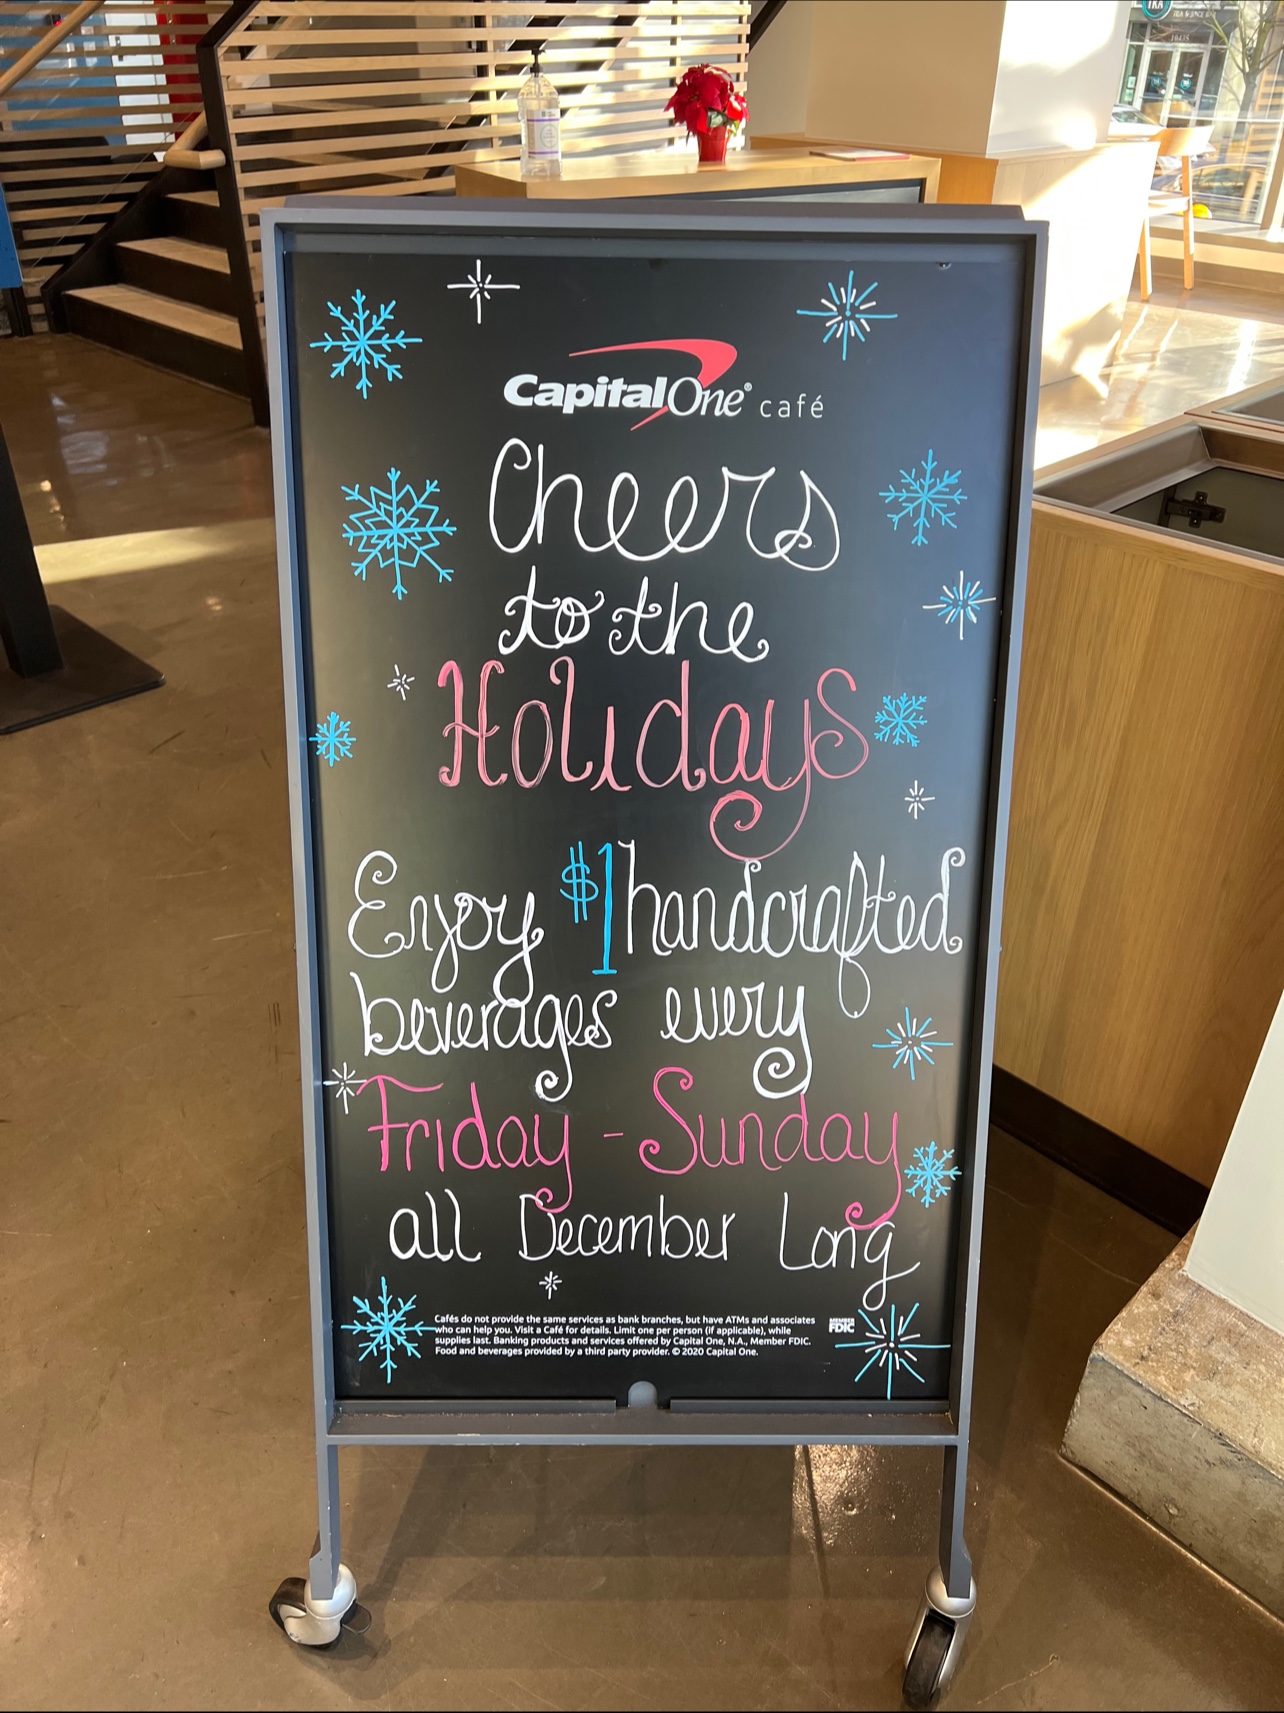 CapitalOne® café
Cheers
to the
Holidays
Enjoy $1 handcrafted
beverages every
Friday - Sunday
all December Long
Cafés do not provide the same services as bank branches, but have ATMs and associates
who can help you. Visit a Café for details. Limit one per person (if applicable), while
supplies last. Banking products and services offered by Capital One, N.A., Member FDIC.
Food and beverages provided by a third party provider. © 2020 Capital One.
MEMBER
FDIC